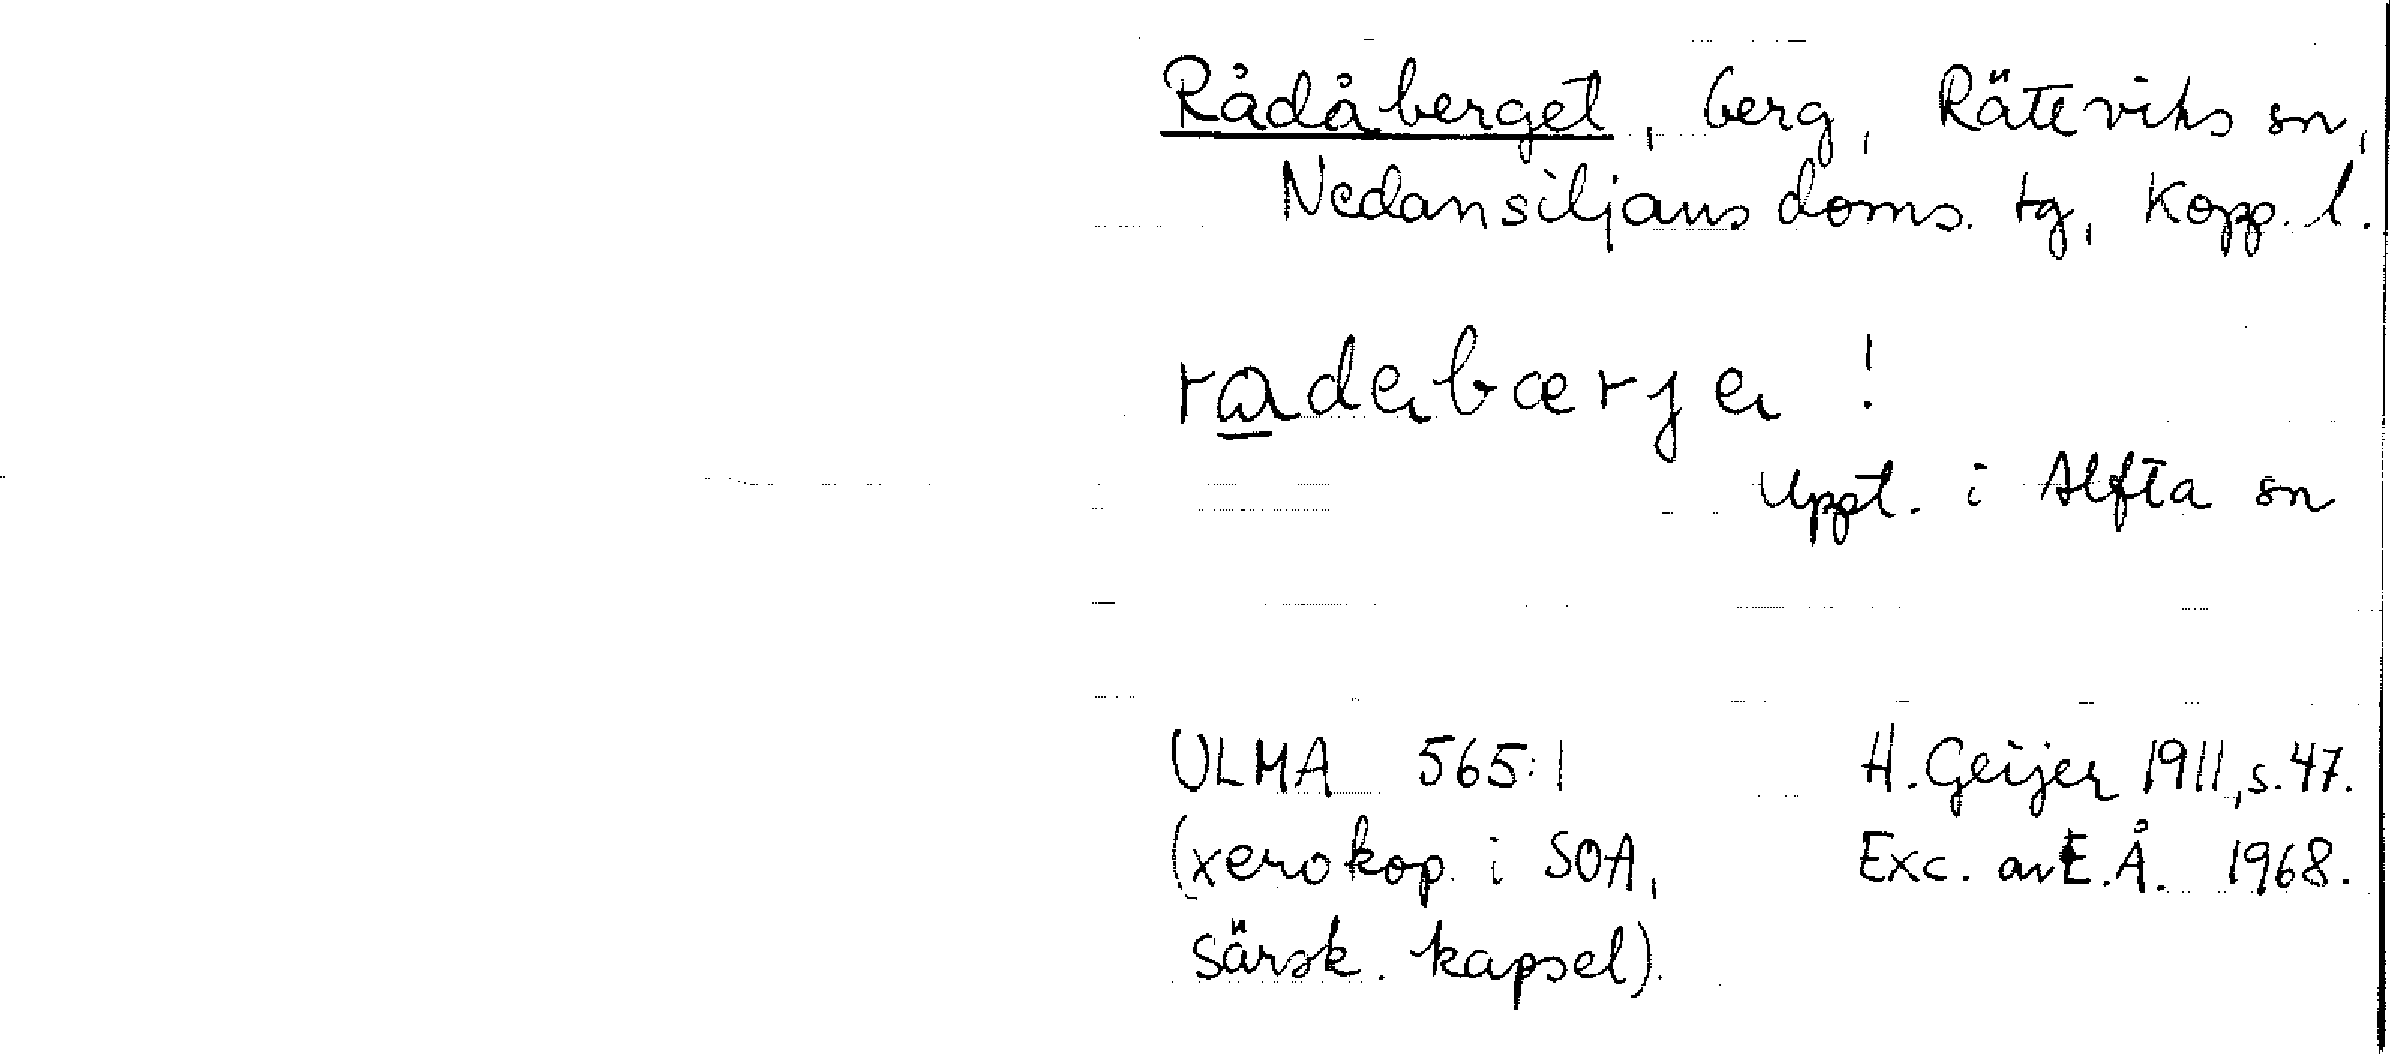 Rådåberget, berg, Rättviks sn,
Nedansiljans doms. tg, Kopp. l.
radebærje !
Uppt. i Alfta sn
ULMA 565:1 H. Geijer 1911, s. 47.
(xerokop. i SOA, Exc. av E.Å. 1968.
särsk. kapsel).